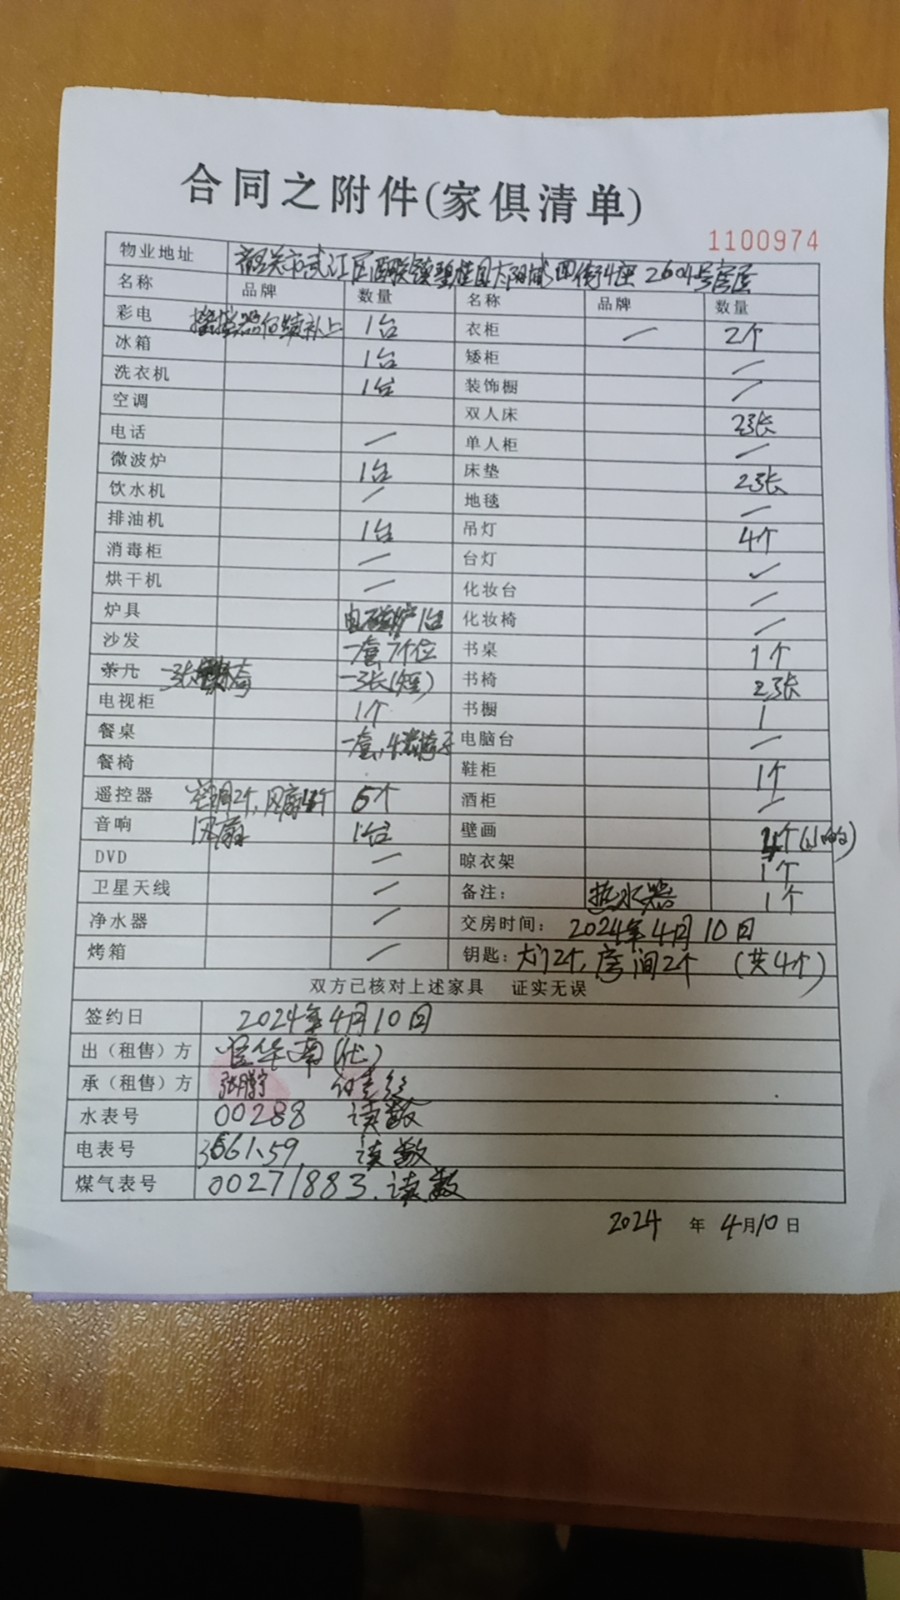 合同之附件(家俱清单)
1100974
物业地址 韶关市武江区西联镇碧桂园太阳城四街4座2604号房屋
名称 品牌 数量 名称 品牌 数量
彩电 后续补上 1台 衣柜 — 2个
冰箱 1台 矮柜 —
洗衣机 1台 装饰橱 —
空调 双人床 2张
电话 — 单人柜 —
微波炉 1台 床垫 2张
饮水机 — 地毯 —
排油机 1台 吊灯 4个
消毒柜 — 台灯 ✓
烘干机 — 化妆台 —
炉具 电磁炉1台 化妆椅 —
沙发 一套,7个位 书桌 1个
茶几 一张 一张(矮) 书椅 2张
电视柜 1个 书橱 1
餐桌 一套,4 椅子 电脑台 —
餐椅 鞋柜 1个
遥控器 空调2个,风扇 个 5个 酒柜 —
音响 风扇 1台 壁画 个
DVD — 晾衣架 1个
卫星天线 — 备注: 热水器 1个
净水器 — 交房时间: 2024年4月10日
烤箱 — 钥匙: 大门2个,房间2个 (共4个)
双方已核对上述家具 证实无误
签约日 2024年4月10日
出(租售)方 华南(代)
承(租售)方 张腾宇
水表号 00288 读数
电表号 3661.59 读数
煤气表号 00271883.读数
2024 年 4月10日